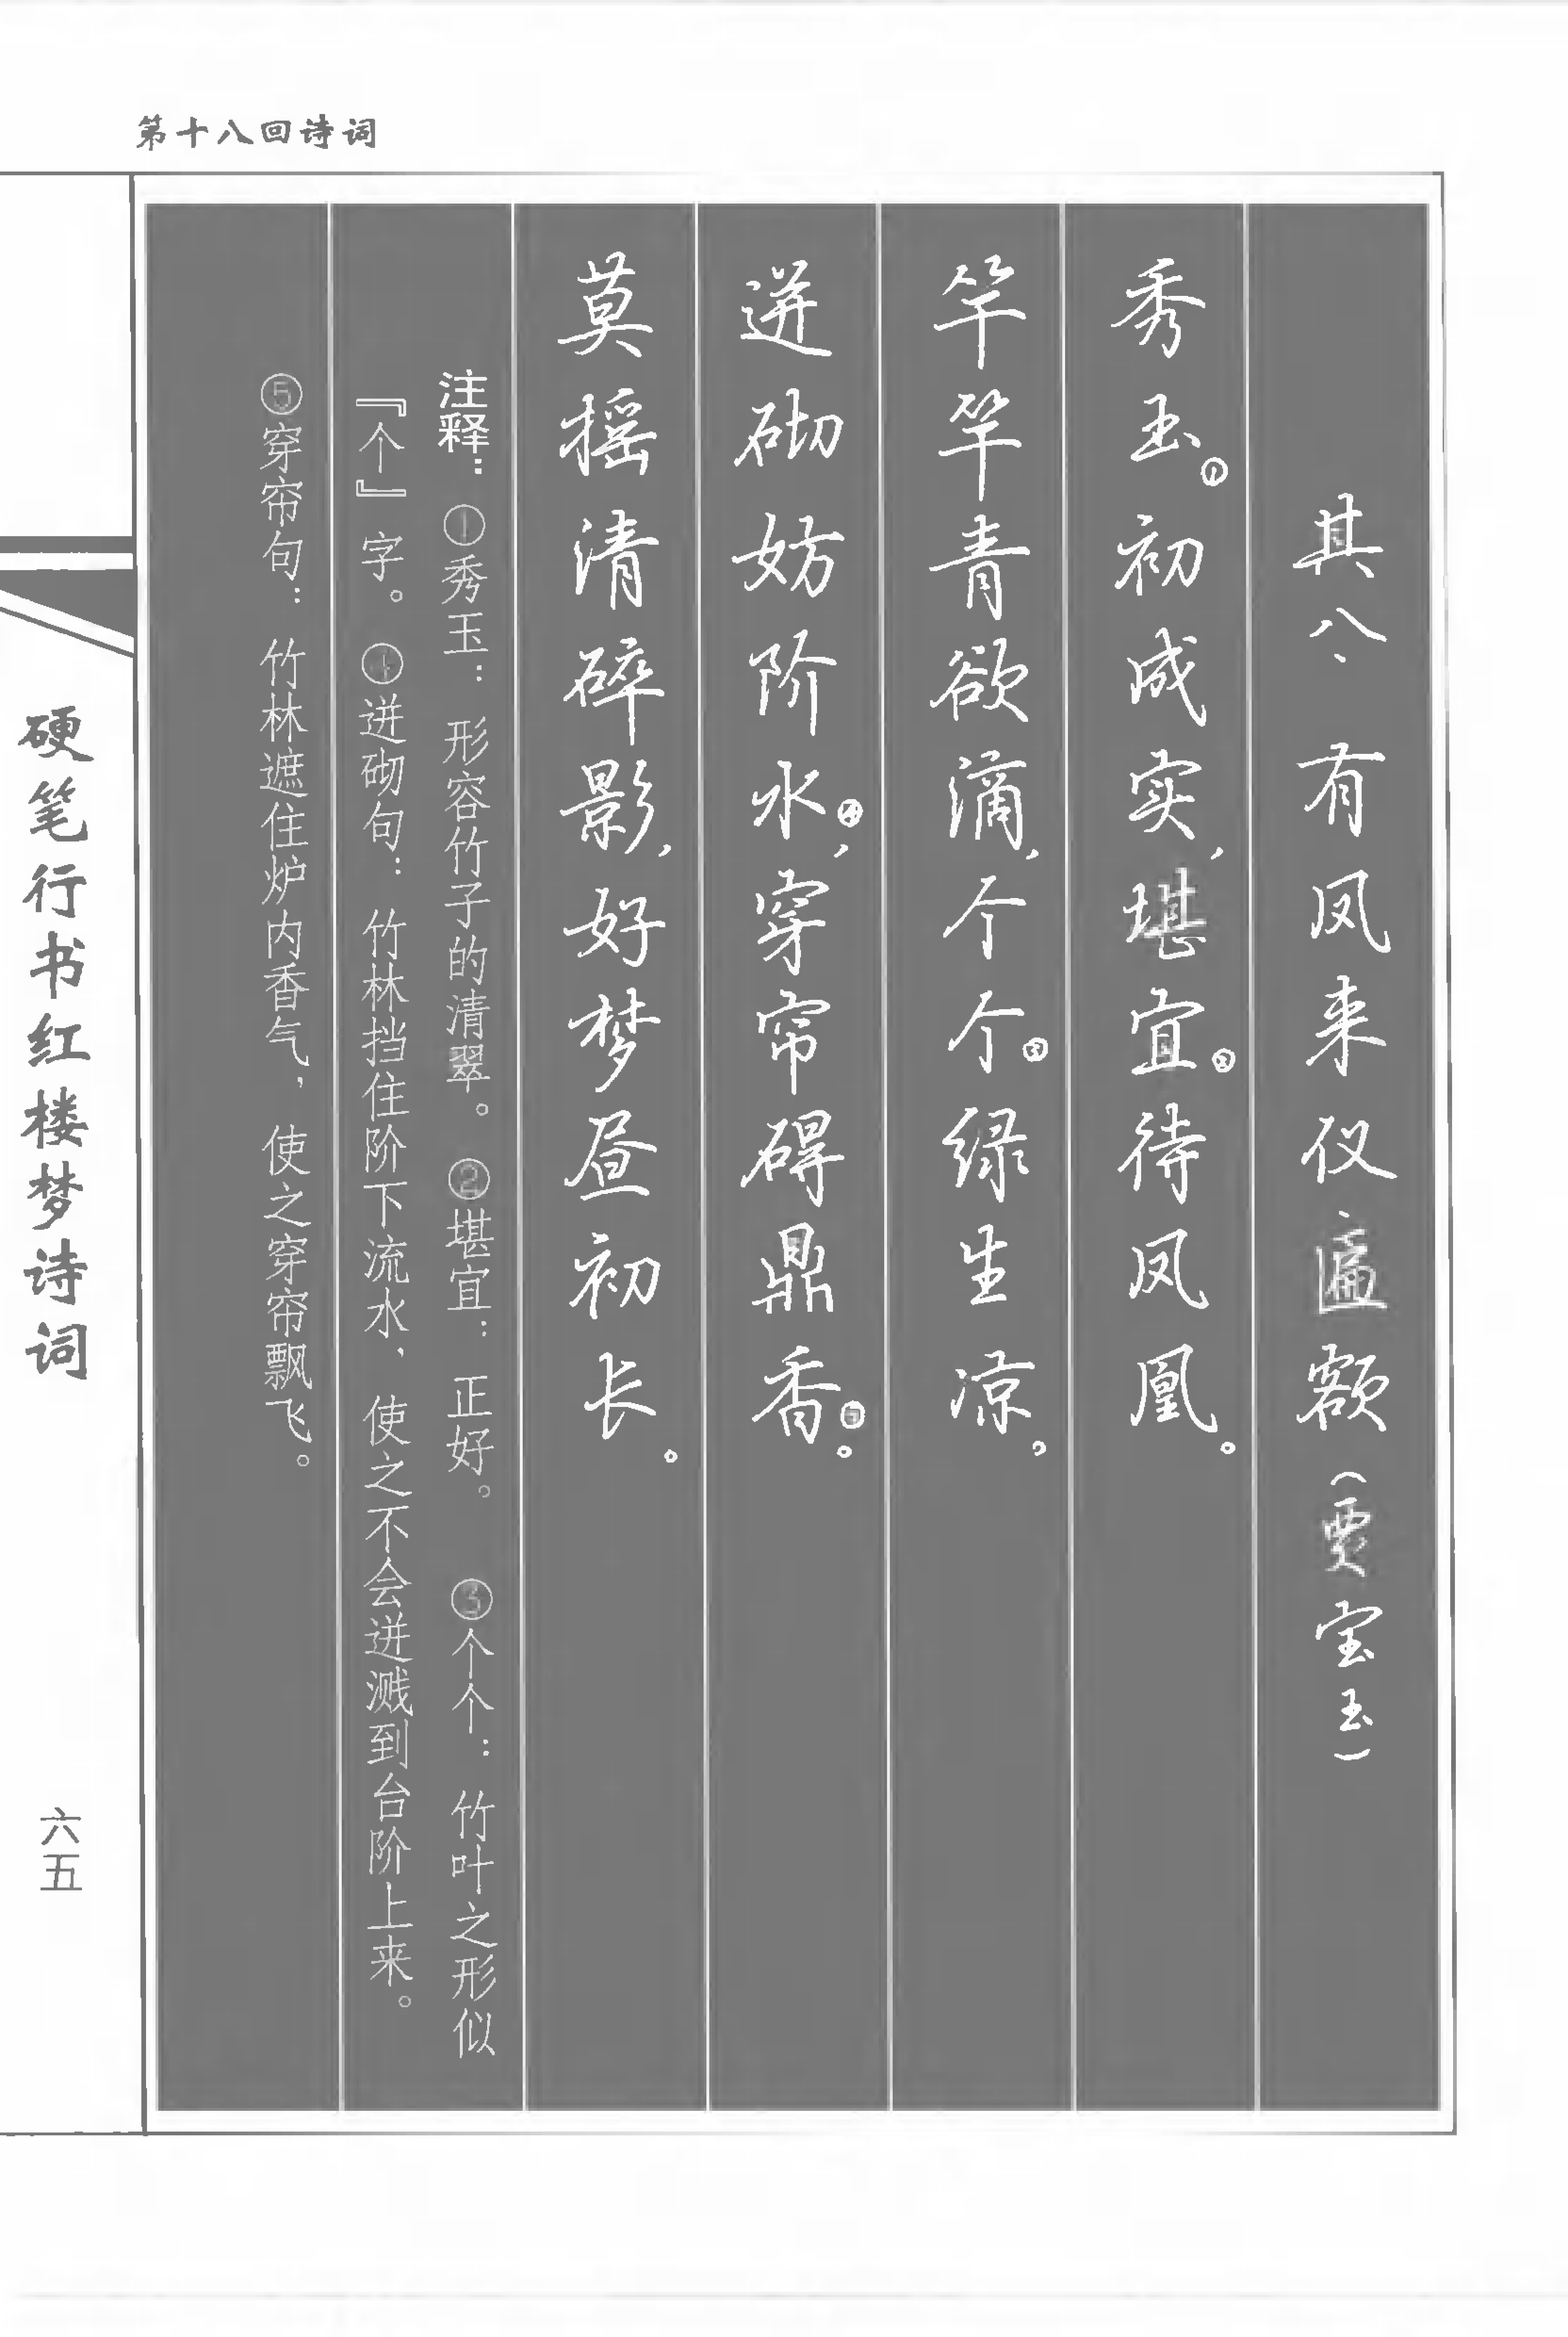 第十八回诗词
其八、有凤来仪匾额（贾宝玉）
秀玉①初成实，堪宜②待凤凰。
竿竿青欲滴，个个③绿生凉，
迸砌妨阶水④，穿帘碍鼎香⑤。
莫摇清碎影，好梦昼初长。
注释：①秀玉：形容竹子的清翠。②堪宜：正好。③个个：竹叶之形似
『个』字。④迸砌句：竹林挡住阶下流水，使之不会迸溅到台阶上来。
⑤穿帘句：竹林遮住炉内香气，使之穿帘飘飞。
硬笔行书红楼梦诗词
六五